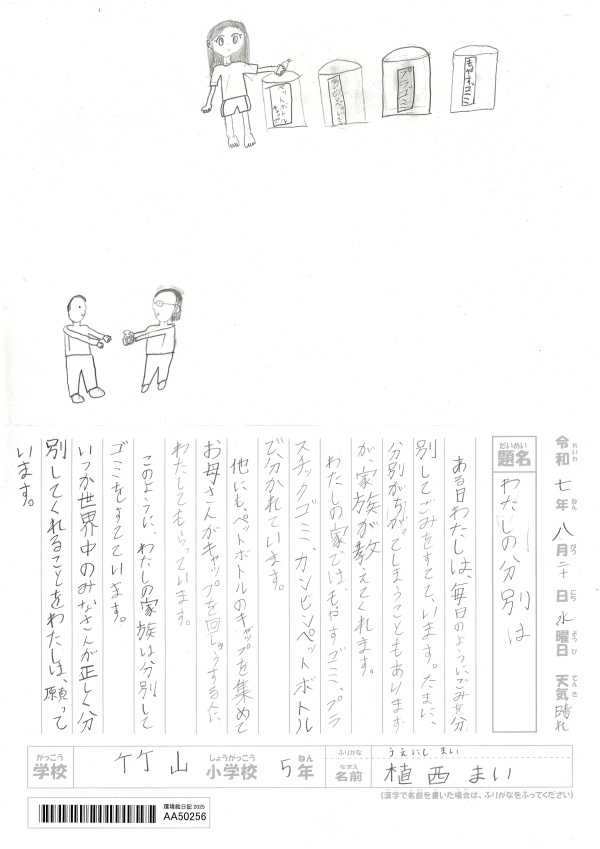 ペットボトルキャップ
プラゴミ
もやすゴミ
令和七年八月二十日水曜日 天気晴れ
れいわ ねん がつ にち ようび てんき
だいめい
題名
わたしの分別は
ある日わたしは、毎日のようにごみを分
別してごみをすてて、います。たまに、
分別がちがってしまうこともあります
が、家族が教えてくれます。
わたしの家では、もやすゴミ、プラ
スチックゴミ、カンビンペットボトル
で分かれています。
他にも、ペットボトルのキャップを集めて
お母さんがキャップを回しゅうする人に
わたしてもらっています。
このように、わたしの家族は分別して
ゴミをすてています。
いつか世界中のみなさんが正しく分
別してくれることをわたしは、願って
います。
がっこう しょうがっこう ねん
学校 竹山 小学校 5年
ふりがな うえにし まい
なまえ
名前 植西 まい
(漢字で名前を書いた場合は、ふりがなをふってください)
環境絵日記 2025
AA50256